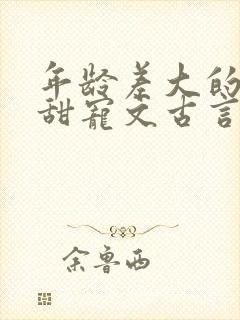 年龄差大的
甜宠文古言
余鲁西